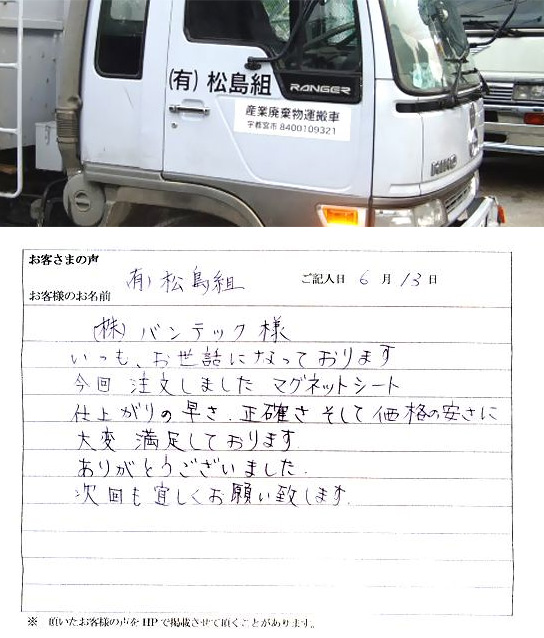 (有) 松島組
RANGER
産業廃棄物運搬車
宇都宮市 8400109321
HINO
お客さまの声
お客様のお名前
(有) 松島組
ご記入日 6 月 13 日
(株) バンテック 様
いつも、お世話になっております
今回 注文しました マグネットシート
仕上がりの早さ、正確さ そして 価格の安さに
大変 満足しております。
ありがとうございました。
次回も宜しくお願い致します。
※ 頂いたお客様の声をHPで掲載させて頂くことがあります。